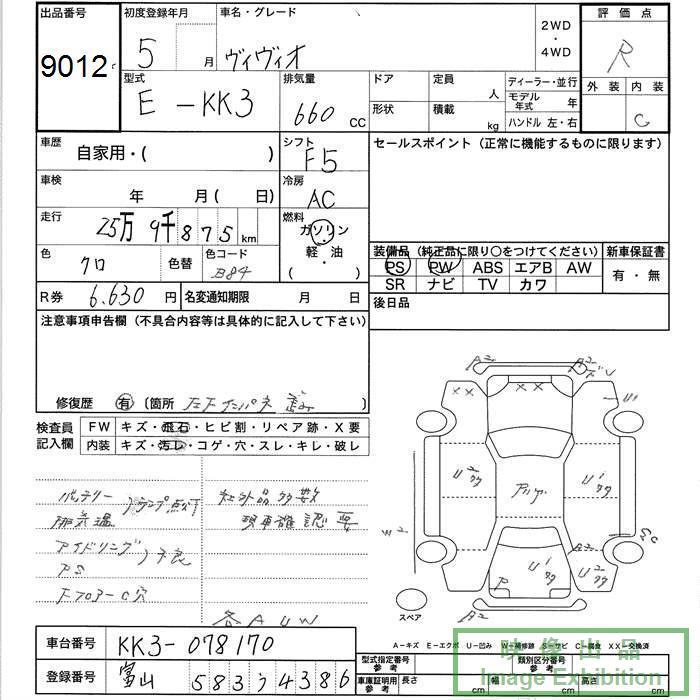 出品番号
9012
初度登録年月
5 月
車名・グレード
ヴィヴィオ
2WD
・
4WD
評価点
R
型式
E-KK3
排気量
660 CC
ドア
形状
定員
人
積載
kg
ディーラー・並行
モデル年式 年
ハンドル 左・右
外装
内装
C
車歴
自家用・( )
シフト
F5
セールスポイント (正常に機能するものに限ります)
車検
年 月( 日)
冷房
AC
走行
25万9千875 km
燃料
ガソリン
軽・油
( ・ )
色
クロ
色替
色コード
B84
装備品 (純正品に限り〇をつけてください)
PS PW ABS エアB AW
SR ナビ TV カワ
新車保証書
有・無
R券
6,630 円
名変通知期限 月 日
後日品
注意事項申告欄 (不具合内容等は具体的に記入して下さい)
修復歴 有 〔箇所 〕
検査員記入欄
FW キズ・飛石・ヒビ割・リペア跡・X要
内装 キズ・汚レ・コゲ・穴・スレ・キレ・破レ
バッテリー
排気温 ランプ点灯
社外品多数
現車確認要
アイドリング
PS 不良
FフロアーC穴
各AUW
スペア
車台番号
KK3-078170
登録番号
富山 583う4386
A-キズ E-エクボ U-凹み W-補修跡 S-サビ C-腐食 XX-交換済
型式指定番号
参考
類別区分番号
参考
車庫証明用
参考
長さ cm
幅 cm
高さ cm
映像出品
Image Exhibition